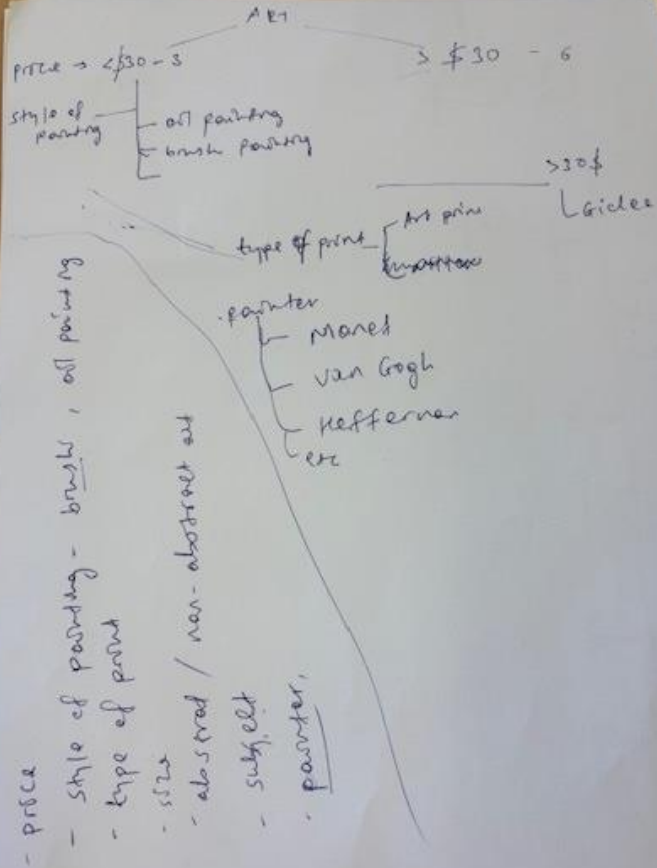 ART
price → <$30 - 3
> $30 - 6
style of painting
oil painting
brush painting
>30$
Giclee
type of print
Art print
painter
Monet
Van Gogh
Heffernan
etc
- price
- style of painting - brush, oil painting
- type of print
- size
- abstract / non-abstract art
- subject
- painter.